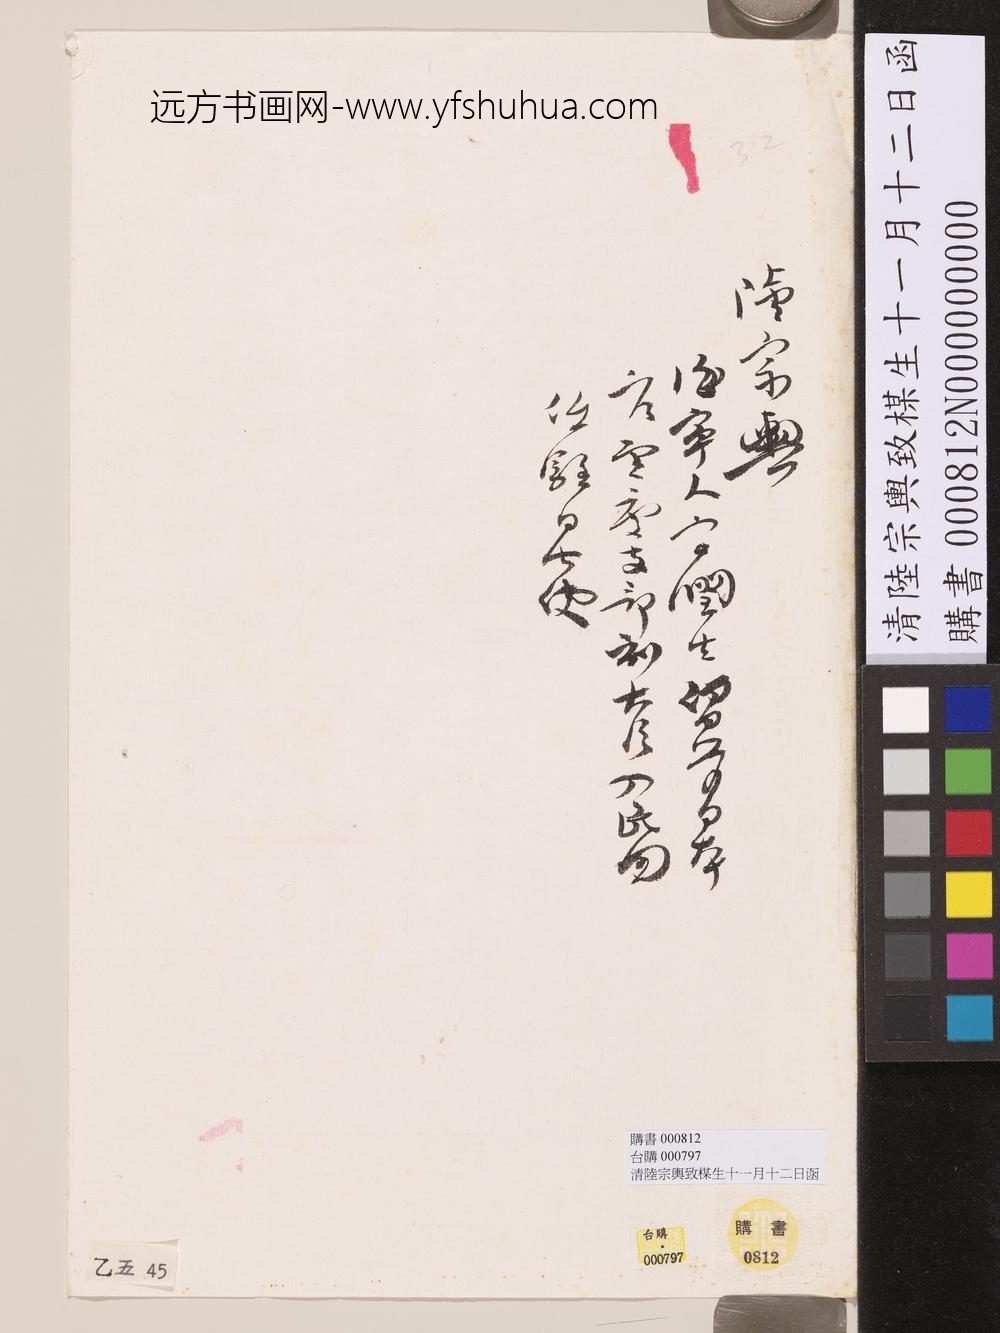 远方书画网-www.yfshuhua.com
32
陸宗輿
海寧人字潤生留學日本
官至度支部副大臣入民国
任駐日公使
清陸宗輿致楳生十一月十二日函
購書 000812N000000000
購書 000812
台購 000797
清陸宗輿致楳生十一月十二日函
台購
000797
購書
0812
乙五 45